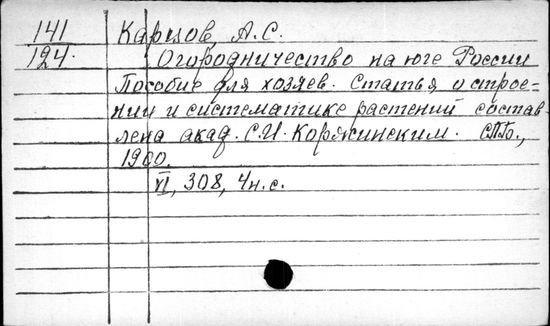 141 Карцов, А.С.
124. Огородничество на юге России
Пособие для хозяев. Статья о строе-
нии и систематике растений состав
лена акад. С.И. Коржинским. СПб.,
1900.
VI, 308, 4н.с.